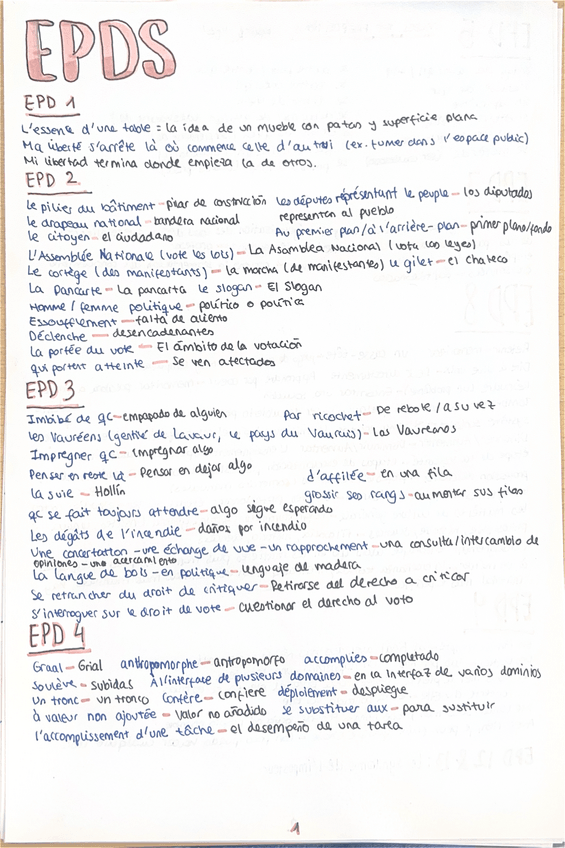 EPDS
EPD 1
L'essence d'une table = la idea de un mueble con patas y superficie plana
Ma liberté s'arrête là où commence celle d'autrui (ex. fumer dans l'espace public)
Mi libertad termina donde empieza la de otros.
EPD 2
Le pilier du bâtiment - pilar de construcción les députes représentant le peuple - los diputados
representan al pueblo
le drapeau national - bandera nacional
le citoyen - el ciudadano Au premier plan/à l'arrière-plan - primer plano/fondo
L'Assemblée Nationale (vote les lois) - La Asamblea Nacional (vota las leyes)
Le cortège (des manifestants) - la marcha (de manifestantes) le gilet - el chaleco
La Pancarte - La pancarta le slogan - El Slogan
Homme / femme politique - político o política
Essoufflement - falta de aliento
Déclenche - desencadenantes
La portée du vote - El ámbito de la votación
qui portent atteinte - Se ven afectados
EPD 3
Imbibé de qc - empapado de alguien Par ricochet - De rebote / a su vez
Les Vauréens (gentilé de Lavaur, le pays du Vaurais) - Los Vaureanos
Impregner qc - impregnar algo
Penser en reste là - Pensar en dejar algo d'affilée - en una fila
la suie - Hollín grossir ses rangs - aumentar sus filas
qc se fait toujours attendre - algo sigue esperando
Les dégâts de l'incendie - daños por incendio
Une concertation - une échange de vue - un rapprochement - una consulta/intercambio de
opiniones - uno acercamiento
La langue de bois - en politique - lenguaje de madera
Se retrancher du droit de critiquer - Retirarse del derecho a criticar
S'interroguer sur le droit de vote - cuestionar el derecho al voto
EPD 4
Graal - Grial anthropomorphe - antropomorfo accomplies - completado
Soulève - subidas À l'interface de plusieurs domaines - en la interfaz de varios dominios
Un tronc - un tronco Confère - confiere déploiement - despliegue
à valeur non ajoutée - Valor no añadido se substituer aux - para sustituir
l'accomplissement d'une tâche - el desempeño de una tarea
1